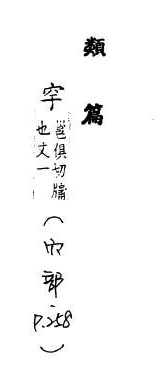 類篇
穻 邕俱切牖
也文一
（穴部 P.258）